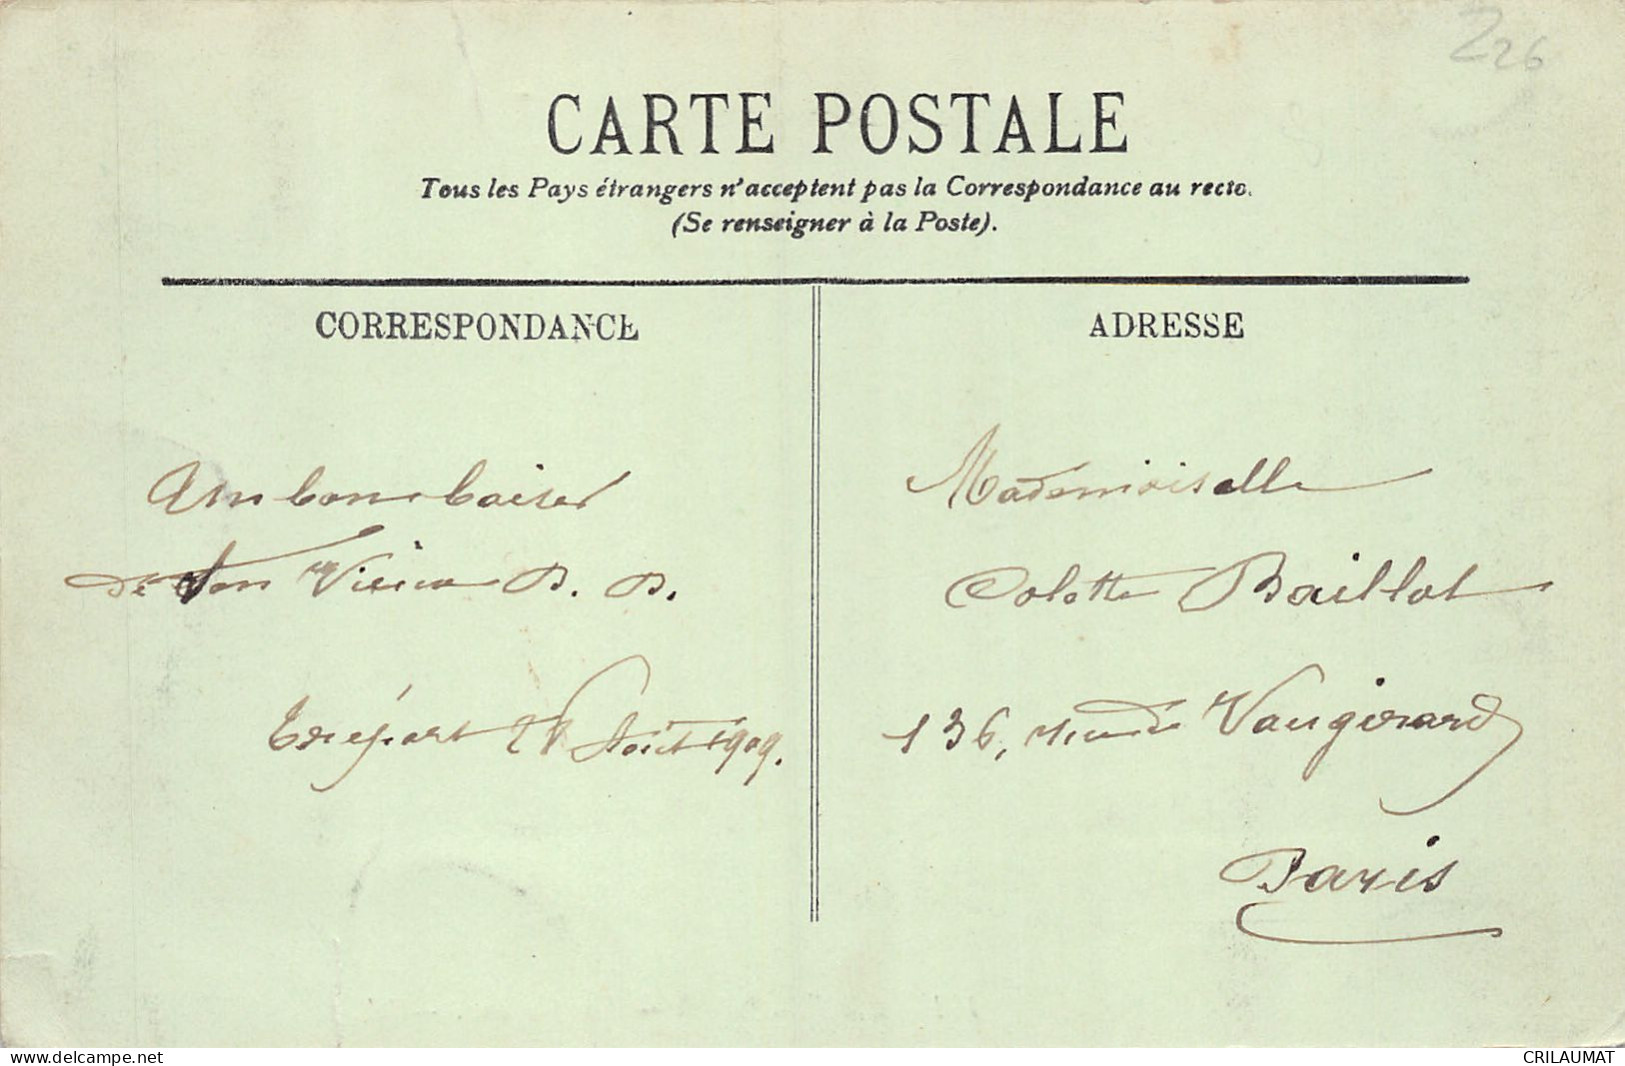 226
CARTE POSTALE
Tous les Pays étrangers n'acceptent pas la Correspondance au recto.
(Se renseigner à la Poste).
CORRESPONDANCE
Un bon baiser
de ton Vieux B. B.
Tréport Août 1909.
ADRESSE
Mademoiselle
Colette Baillot
136, rue de Vaugirard
Paris
www.delcampe.net
CRILAUMAT